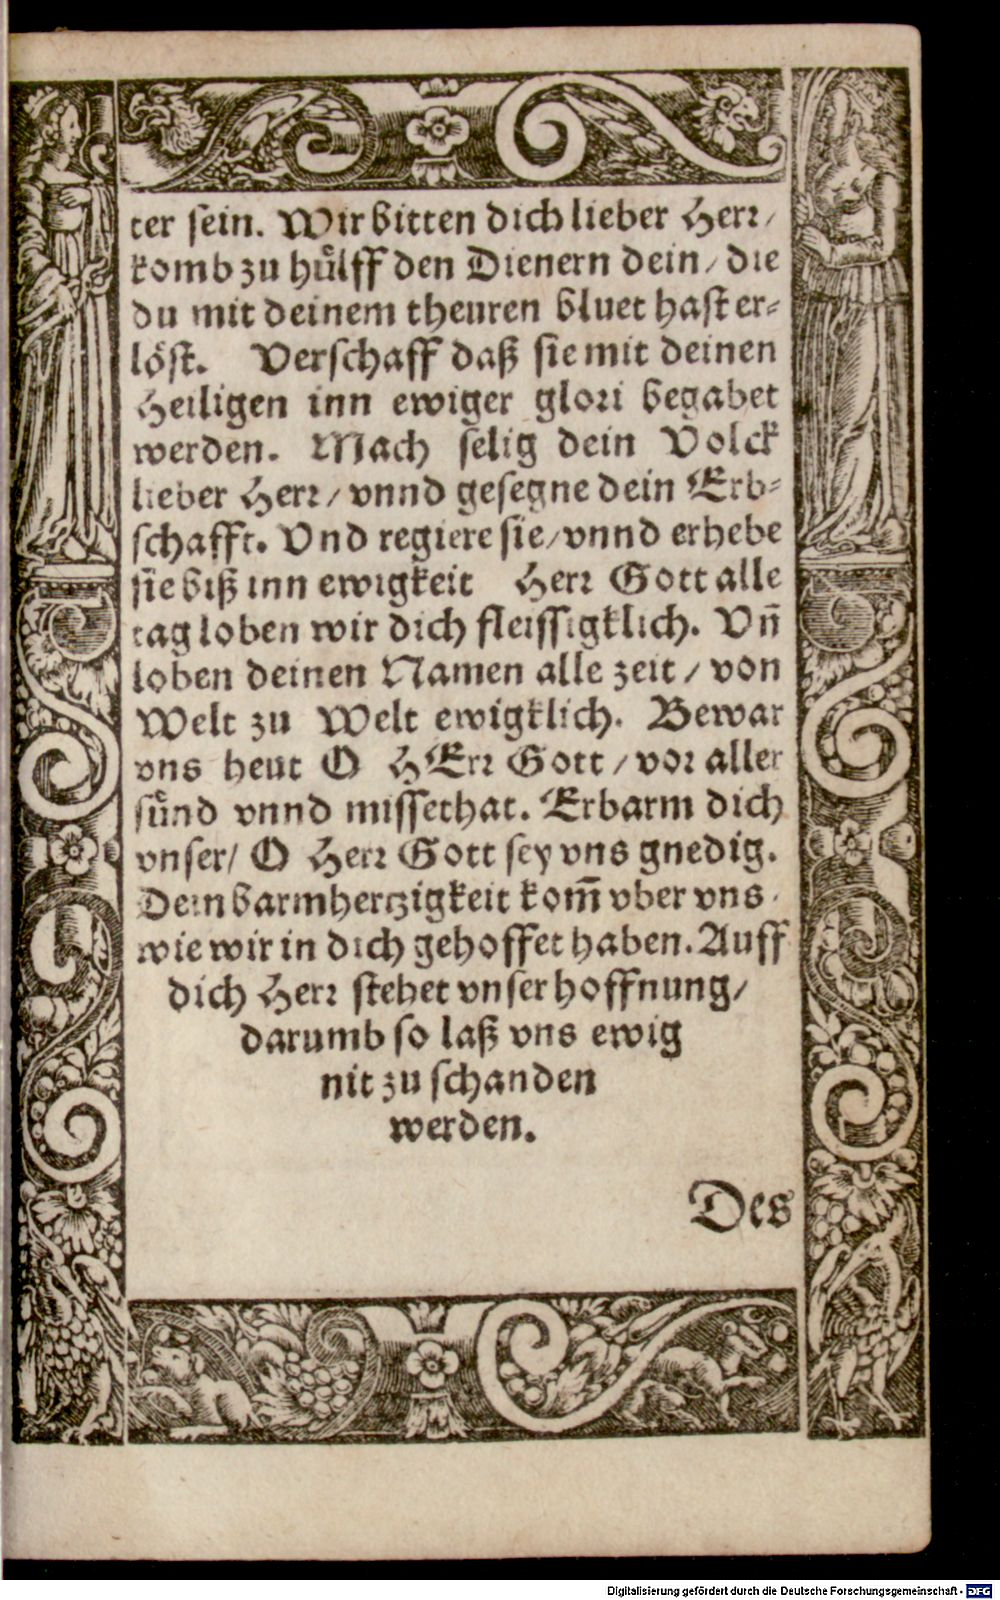 ter sein. Wir bitten dich lieber Herr/
komb zu huͤlff den Dienern dein/ die
du mit deinem theuren bluet hast er⸗
loͤst. Verschaff daß sie mit deinen
Heiligen inn ewiger glori begabet
werden. Mach selig dein Volck
lieber Herr/ vnnd gesegne dein Erb⸗
schafft. Vnd regiere sie/ vnnd erhebe
sie biß inn ewigkeit Herr Gott alle
tag loben wir dich fleissigklich. Vn̄
loben deinen Namen alle zeit/ von
Welt zu Welt ewigklich. Bewar
vns heut O HErr Gott/ vor aller
suͤnd vnnd missethat. Erbarm dich
vnser/ O Herr Gott sey vns gnedig.
Dein barmhertzigkeit kom̄ vber vns.
wie wir in dich gehoffet haben. Auff
dich Herr stehet vnser hoffnung/
darumb so laß vns ewig
nit zu schanden
werden.
Des
Digitalisierung gefördert durch die Deutsche Forschungsgemeinschaft - DFG